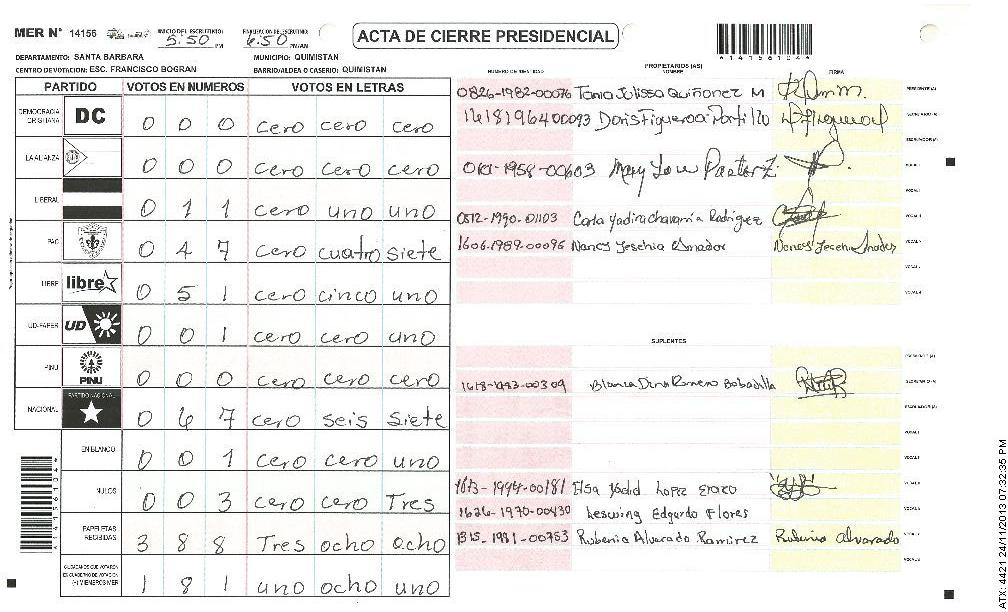 MER N° 14156 INICIO DEL ESCRUTINIO: 5:50 PM FINALIZACION DEL ESCRUTINIO: 6:50 PM/AM
ACTA DE CIERRE PRESIDENCIAL
DEPARTAMENTO: SANTA BARBARA MUNICIPIO: QUIMISTAN
CENTRO DE VOTACION: ESC. FRANCISCO BOGRAN BARRIO/ALDEA O CASERIO: QUIMISTAN
PARTIDO VOTOS EN NUMEROS VOTOS EN LETRAS
DEMOCRACIA CRISTIANA DC 0 0 0 cero cero cero
LA ALIANZA 0 0 0 cero cero cero
LIBERAL 0 1 1 cero uno uno
PAC 0 4 7 cero cuatro siete
LIBRE libre 0 5 1 cero cinco uno
UD-FAPER UD 0 0 1 cero cero uno
PINU PINU 0 0 0 cero cero cero
NACIONAL PARTIDO NACIONAL 0 6 7 cero seis siete
EN BLANCO 0 0 1 cero cero uno
NULOS 0 0 3 cero cero Tres
PAPELETAS RECIBIDAS 3 8 8 Tres ocho ocho
CIUDADANOS QUE VOTARON EN CUADERNO DE VOTACION (+) MIEMBROS MER 1 8 1 uno ocho uno
PROPIETARIOS (AS)
NUMERO DE IDENTIDAD NOMBRE FIRMA
0826-1982-00076 Tania Julissa Quiñonez M PRESIDENTE (A)
1618196400093 Doris Figueroa Portillo D Figueroa P SECRETARIO (A)
ESCRUTADOR (A)
Mary Lou Pastor Z. VOCAL 1
0512-1990-01103 Carla Yadira Chavarria Rodriguez
1606-1989-00096 Nancy Jeschia Amador
SUPLENTES
PRESIDENTE (A)
1618-1993-00309 Blanca Dina Romero Bobadilla SECRETARIO (A)
ESCRUTADOR (A)
VOCAL 1
1613-1994-00181 Elsa Yadid Lopez Erazo
1626-1970-00430 Leswing Edgardo Flores
1315-1981-00753 Rubenia Alvarado Ramirez Rubenia Alvarado
*14156104*
ATX: 4421 24/11/2013 07:32:35 PM